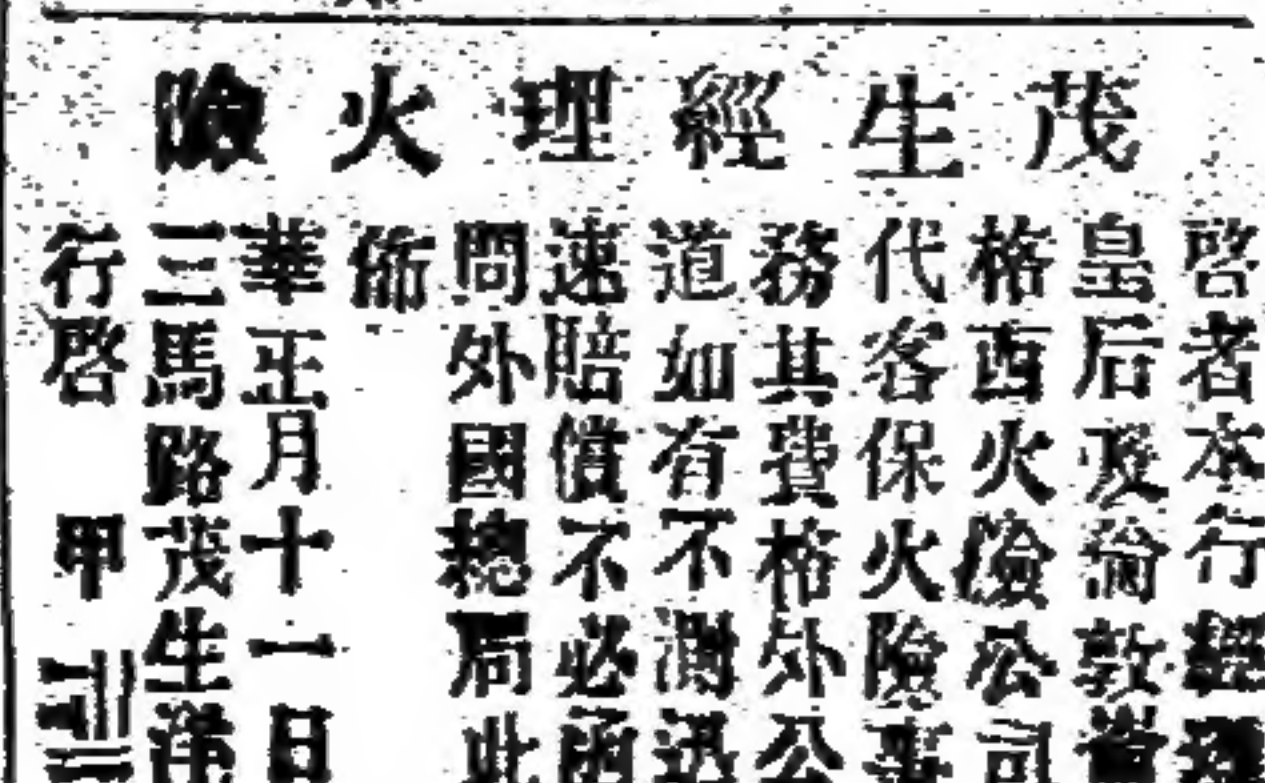 茂生經理火險
啓者本行經理
皇后及倫敦
格西火險公司
代客保火險事
務其費格外公
道如有不測迅
速賠償不必函
問外國總局此
佈
華正月十一日
三馬路茂生洋
行啓 甲